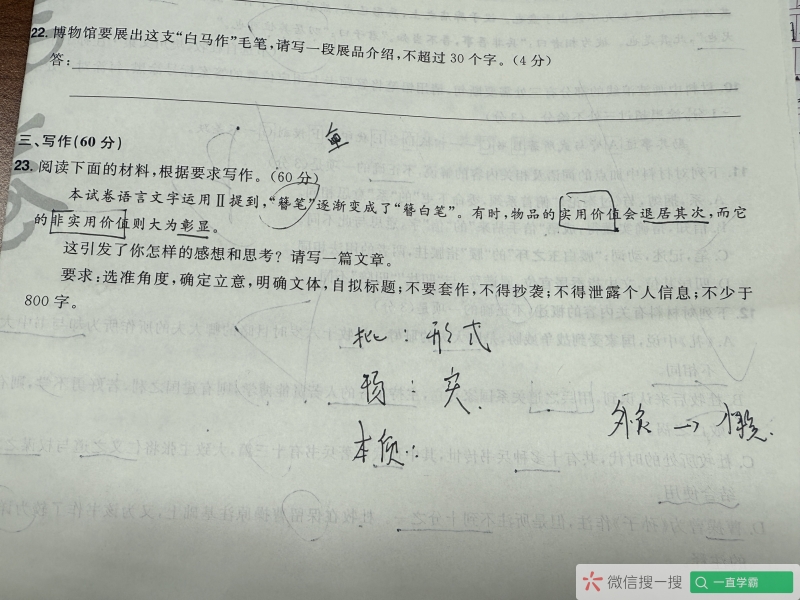 22. 博物馆要展出这支“白马作”毛笔,请写一段展品介绍,不超过 30 个字。(4 分)
答:
三、写作(60 分)
鱼
23. 阅读下面的材料,根据要求写作。(60 分)
本试卷语言文字运用Ⅱ提到,“簪笔”逐渐变成了“簪白笔”。有时,物品的实用价值会退居其次,而它
的非实用价值则大为彰显。
这引发了你怎样的感想和思考?请写一篇文章。
要求:选准角度,确定立意,明确文体,自拟标题;不要套作,不得抄袭;不得泄露个人信息;不少于
800 字。
批:形式
扬:实
本质:
微信搜一搜
一直学霸